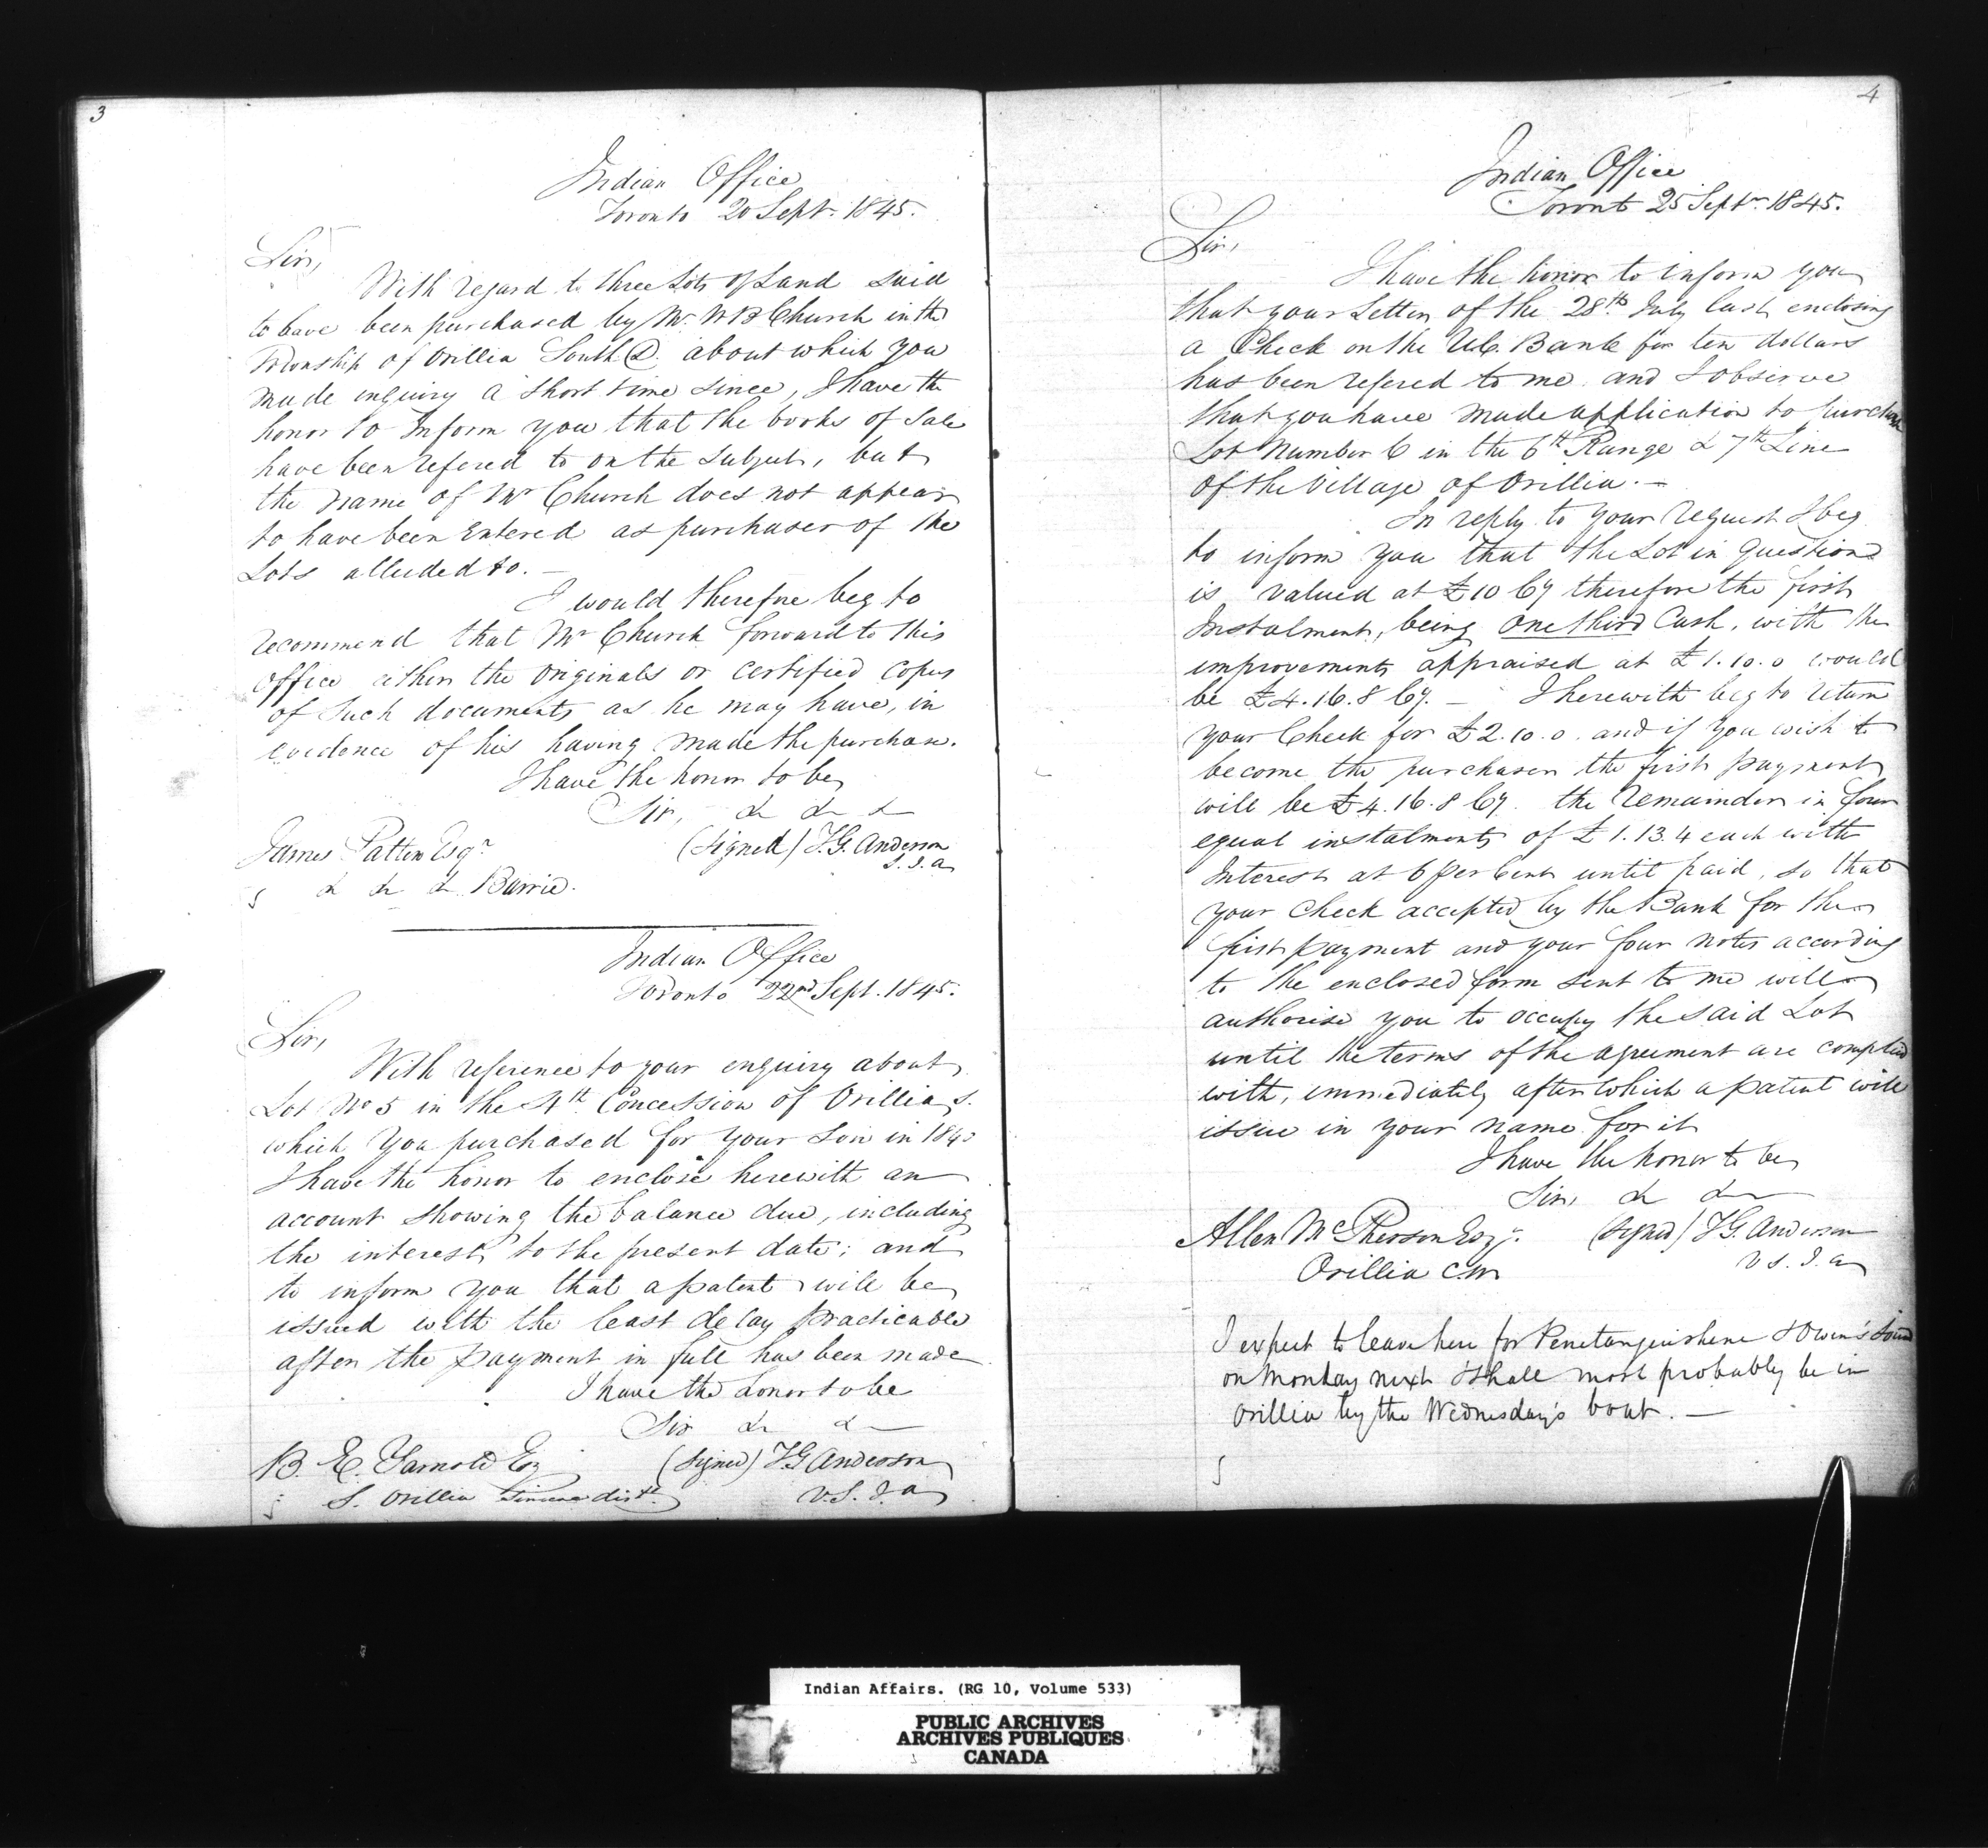 3
Indian Office
Toronto 20 Sept. 1845.
Sir,
With regard to three Lots of Land said
to have been purchased by Mr. W B Church in the
Township of Orillia South about which you
made inquiry a short time since, I have the
honor to inform you that the books of Sale
have been refered to on the subject, but
the name of Mr Church does not appear
to have been Entered as purchaser of the
Lots alluded to. —
I would therefore beg to
recommend that Mr Church forward to this
Office either the Originals or certified copies
of such documents as he may have, in
evidence of his having made the purchase.
I have the honor to be,
Sir, & & &
James Patton Esqr
(Signed) T.G. Anderson
S.I.A
& & & Barrie.
Indian Office
Toronto 22nd Sept. 1845.
Sir,
With reference to your enquiry about
Lot No 5 in the 4th Concession of Orillia S.
which you purchased for your Son in 1840
I have the honor to enclose herewith an
account showing the balance due, including
the interest to the present date; and
to inform you that a patent will be
issued with the least delay practicable
after the payment in full has been made
I have the honor to be
Sir & &
B. E. Esq
(Signed) T.G Anderson
S. Orillia Simcoe distt.
V.S.I.A
4
Indian Office
Toronto 25 Septr. 1845.
Sir,
I have the honor to inform you
that your Letter of the 28th July last enclosing
a Check on the U.C. Bank for ten dollars
has been refered to me and I observe
that you have made application to purchase
Lot Number 6 in the 6th Range & 7th Line
of the Village of Orillia. —
In reply to your request I beg
to inform you that the Lot in question
is valued at £10 Cy therefore the first
Instalment, being one third Cash, with the
improvements appraised at £1.10.0 would
be £4.16.8 Cy. — I herewith beg to return
your Check for £2.10.0. and if you wish to
become the purchaser the first payment
will be £4.16.8 Cy. the remainder in four
equal instalments of £1.13.4 each with
Interest at 6 per Cent until paid, so that
your Check accepted by the Bank for the
first payment and your four notes according
to the enclosed form sent to me will
authorise you to occupy the said Lot
until the terms of the agreement are complied
with, immediately after which a patent will
issue in your name for it
I have the honor to be
Sir, & &
Allen McPherson Esqr.
(Signed) T.G. Anderson
Orillia C.W
V.S.I.A
I expect to leave here for Penetanguishene & Owen's Sound
on Monday next & shall most probably be in
Orillia by the Wednesday's boat. —
Indian Affairs. (RG 10, Volume 533)
PUBLIC ARCHIVES
ARCHIVES PUBLIQUES
CANADA